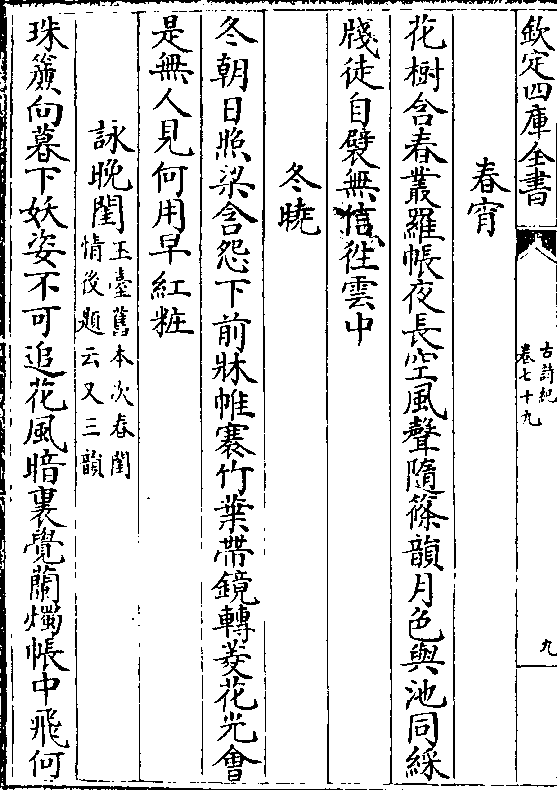 欽定四庫全書
古詩紀
卷七十九
九
春宵
花樹含春叢羅帳夜長空風聲隨篠韻月色與池同綵
牋徒自襞無信徃雲中
冬曉
冬朝日照梁含怨下前牀帷褰竹葉帶鏡轉菱花光㑹
是無人見何用早紅粧
詠晚閨
玉臺舊本次春閨
情後題云又三韻
珠簾向暮下妖姿不可追花風暗裏覺蘭燭帳中飛何